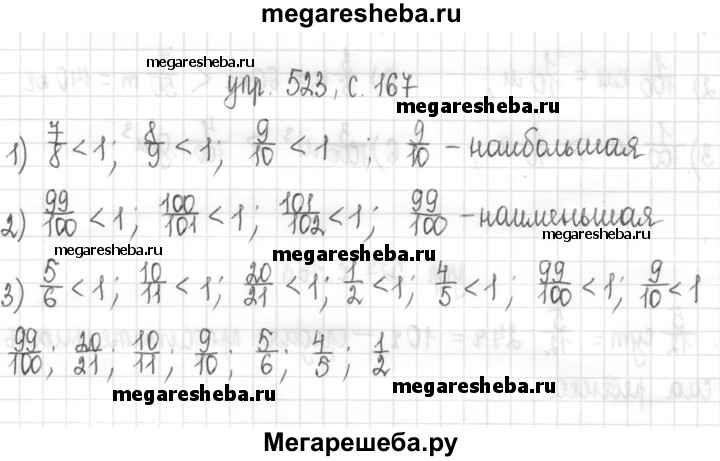 megaresheba.ru
megaresheba.ru
упр. 523, с. 167
megaresheba.ru
1) 7/8 < 1; 8/9 < 1; 9/10 < 1; 9/10 – наибольшая
megaresheba.ru
2) 99/100 < 1; 100/101 < 1; 101/102 < 1; 99/100 – наименьшая
megaresheba.ru
megaresheba.ru
megaresheba.ru
3) 5/6 < 1; 10/11 < 1; 20/21 < 1; 1/2 < 1; 4/5 < 1; 99/100 < 1; 9/10 < 1
99/100; 20/21; 10/11; 9/10; 5/6; 4/5; 1/2
megaresheba.ru
megaresheba.ru
Мегарешеба.ру